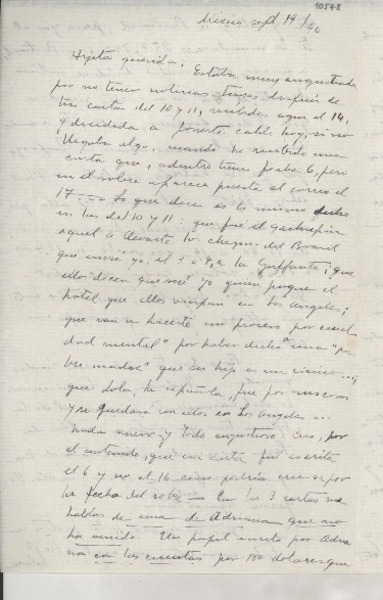 10548
México sept 19/40
Hijita querida: Estaba muy angustiada
por no tener noticias tuyas después de
tus cartas del 10 y 11, recibidas aquí el 14,
y decidida a ponerte cable hoy, si no
llegaba algo, cuando he recibido una
carta que, adentro tiene fecha 6, pero
en el sobre aparece puesta al correo el
17 — Lo que dice es lo mismo
en las del 10 y 11: que fué el
aquel a llevarte los cheques del Brasil
que envié yo, el 8 o 9, a la ; que
ellos dicen que seré yo quien pague el
hotel que ellos en los Angeles;
que van a hacerte un proceso por
dad mental" por haber dicho una "po-
bre madre" que su hijo es un cínico...;
que Lola, la española, fué por
y se quedará con ellos en Los Angeles...
Nada nuevo y todo angustioso. Creo, por
el contenido, que esa carta fué escrita
el 6 y no el 16 como podría creerse por
la fecha del sobre — En las 3 cartas me
hablas de una de Adriana que no
ha venido. Un papel escrito por Adria
na con las cuentas por 180 dolares que